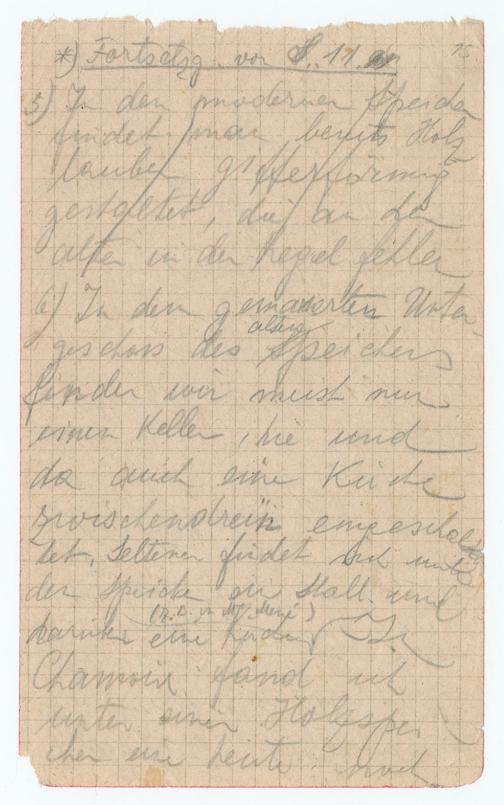 15
*) Fortsetzg. von S. 11
5) In den modernen Speicher
findet man bereits Holz
lauben gitterförmig
gestaltet, die an den
alten in der Regel fehlen
6) In dem gemauerten Unter-
alten
geschoss des Speichers
finden wir meist nur
einen Keller, hie und
da auch eine Küche
zwischendrein eingeschal
tet. Seltener findet sich unter
der Speicher ein Stall und
(z. B. in
darüber eine
In
Chamoix fand ich
unter einem Holzspei
cher eine heute noch